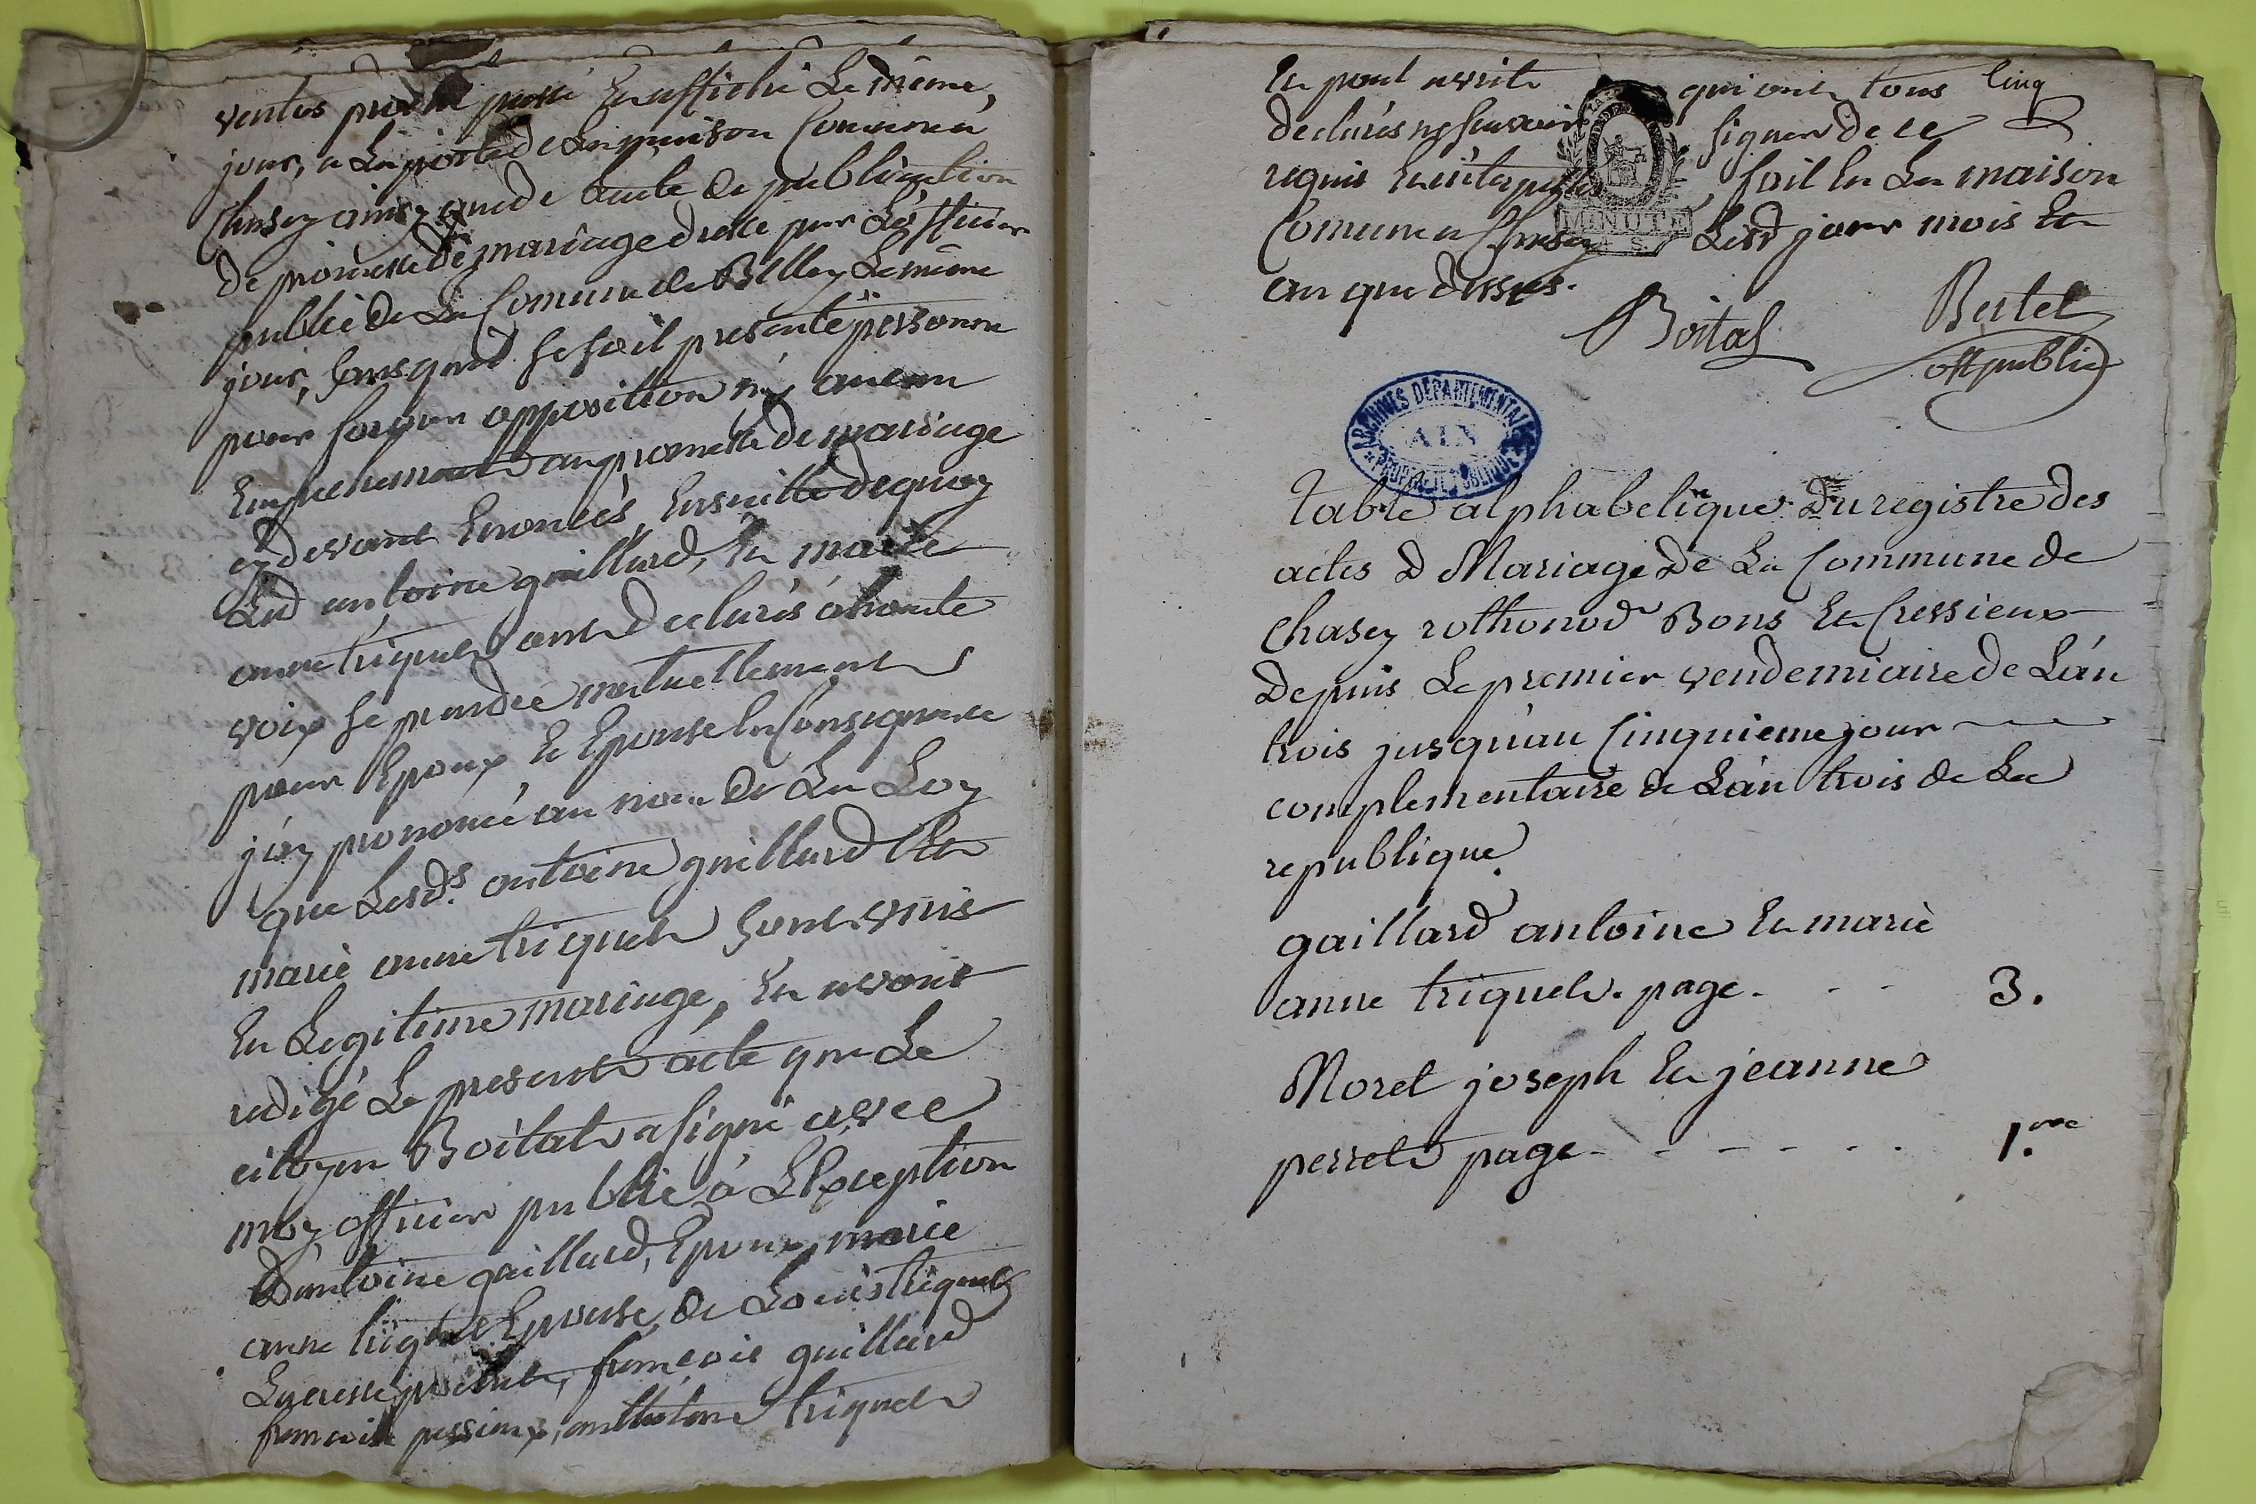 ventos passé En affiché Le même
jour, a La porte de La maison Commune
Chasey ainsy que de l'acte de publication
de promesse de mariage dressé par L'officier
publié de La Commune de Belley Le même
jour, sans qu'il se soit presenté personne
pour former opposition ny aucun
Empechement au promesse de mariage
cy devant Enoncés, Ensuitte de quoy
Led antoine gaillard, En marie
anne triquet ont declarés a haute
voix se prendre mutuellement
pour Epoux & Epouse En Consequence
j'ay prononcé au nom de La Loy
que Lesd.s antoine gaillard En
marie anne triquet sont unis
En Legitime mariage, En avons
redigé Le present acte que Le
citoyen Boitat a signé avec
moy officier public à L'Exception
D'antoine gaillard, Epoux, marie
anne triquet Epouse, de Louis triquet
françois gaillard
triquet
qui ont tous Cinq
declarés ne scavoir signer de ce
requis fait En La maison
Comune a Chasey Lesd jour mois En
an que dessus.
Boitat Bertet
off public
MINUTE
ARCHIVES DÉPARTEMENTALES
AIN
PROPRIÉTÉ PUBLIQUE
Table alphabetique Du registre des
actes D Mariage De La Commune de
Chasey rothonod Bons En Cressieux
Depuis Le premier vendemiaire de L'an
trois jusqu'au Cinquieme jour
complementaire de L'an trois de La
republique.
gaillard antoine En marie
anne triquet. page. - - 3.
Moret joseph En jeanne
perret page - - - - - - 1.re